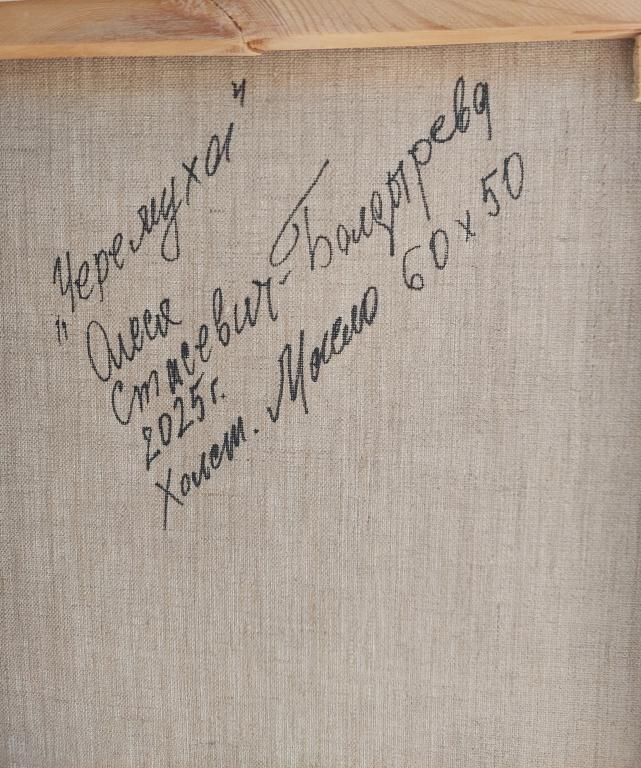 "Черемуха"
Олеся
Стасевич-Болдырева
2025г.
Холст. Масло 60 х 50